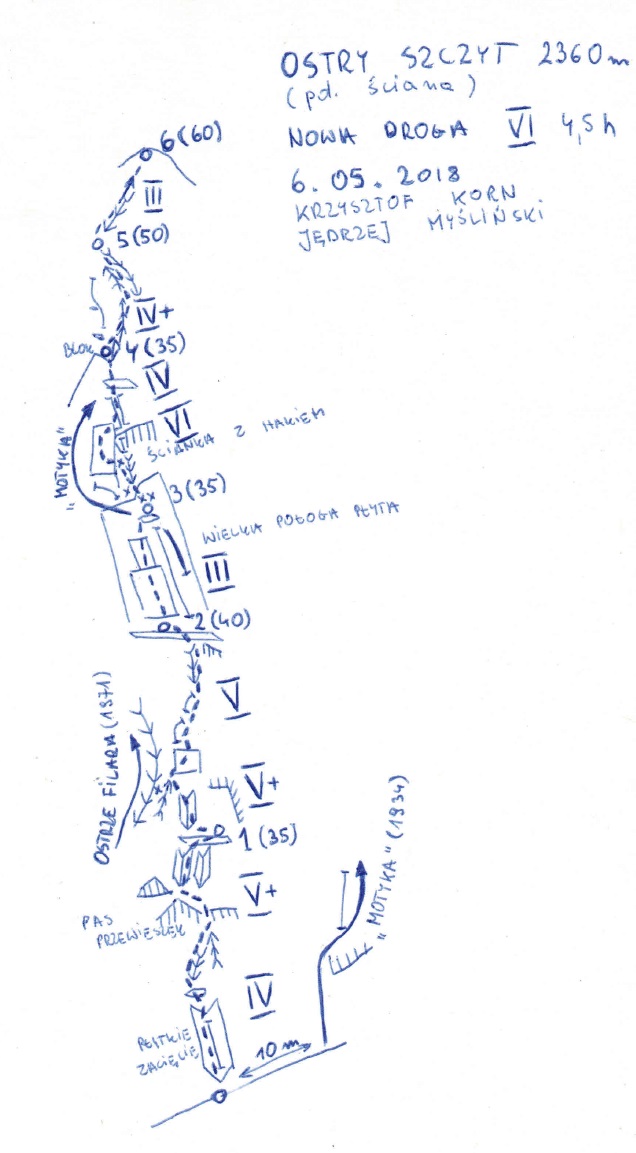 OSTRY SZCZYT 2360m
(pd. ściana)
NOWA DROGA VI 4,5h
6.05.2018
KRZYSZTOF KORN
JĘDRZEJ MYŚLIŃSKI
6(60)
III
5(50)
IV+
BLOK
4(35)
IV
VI
ŚCIANKA Z HAKIEM
"MOTYKA"
3(35)
WIELKA POŁOGA PŁYTA
III
2(40)
V
OSTRZE FILARA (1971)
V+
1(35)
V+
PAS
PRZEWIESZEK
"MOTYKA" (1934)
IV
PŁYTKIE
ZACIĘCIE
10 m